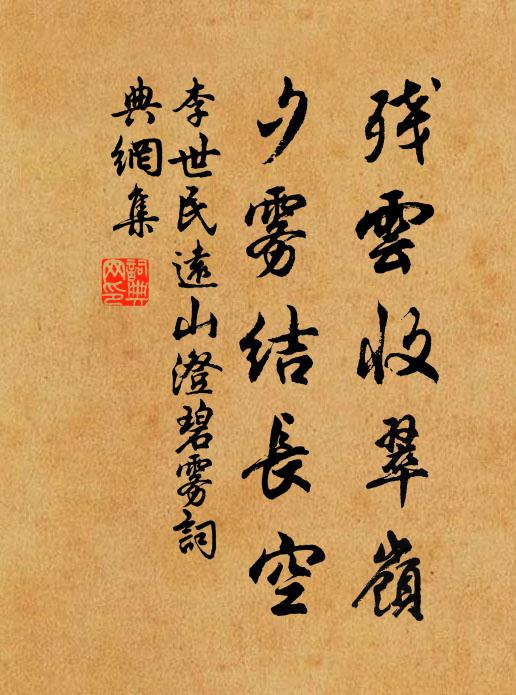 残雲收翠嶺
夕雾結長空
李世民遠山澄碧雾詞
典網集
詞典
网印